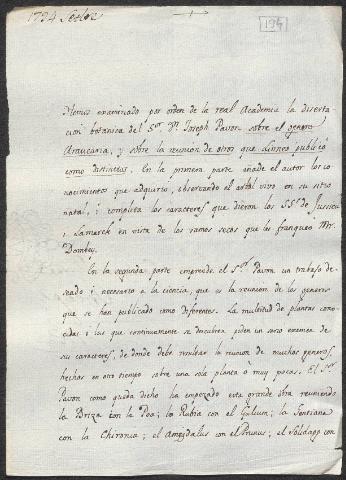 1794
194
Hemos examinado por orden de la real Academia la diserta-
cion botanica del Sor. Dn. Joseph Pavon sobre el genero
Araucaria, y sobre la reunion de otros que Linneo publicó
como distintos. En la primera parte añade el autor los co-
nocimientos que adquirió, observando el arbol vivo en su sitio
natal, i completa los caracteres que dieron los SSres. de Jussieu
i Lamarck en vista de los ramos secos que les franqueo Mr.
Dombey.
En la segunda parte emprende el Sr. Pavon un trabajo de-
seado i necesario a la ciencia, que es la reunion de los generos
que se han publicado como diferentes. La multitud de plantas cono-
cidas i las que continuamente se descubren piden un serio examen de
sus caracteres, de donde debe resultar la reunion de muchos generos,
hechos en otro tiempo sobre una sola planta o muy pocas. El Sr.
Pavon como queda dicho ha empezado esta grande obra reuniendo
la Briza con la Poa; la Rubia con el Galium; la Gentiana
con la Chironia; el Amygdalus con el Prunus; el Solidago con